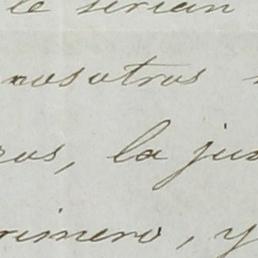 le serian
nosotros
ros, la jus
rimero, y